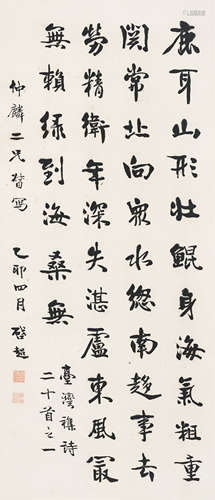 鹿耳山形壯鯤身海氣粗重
關常北向眾水總南趨事去
勞精衛年深失湛盧東風最
無賴綠到海桑無
臺灣雜詩
二十首之一
仲麟二兄督寫 乙卯四月 啟超